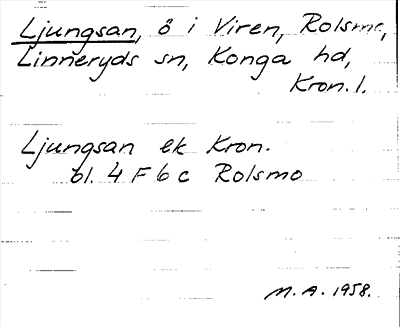 Ljungsan, ö i Viren, Rolsmo,
Linneryds sn, Konga hd,
Kron. l.
Ljungsan ek Kron.
bl. 4 F 6 c Rolsmo
M. A. 1958.